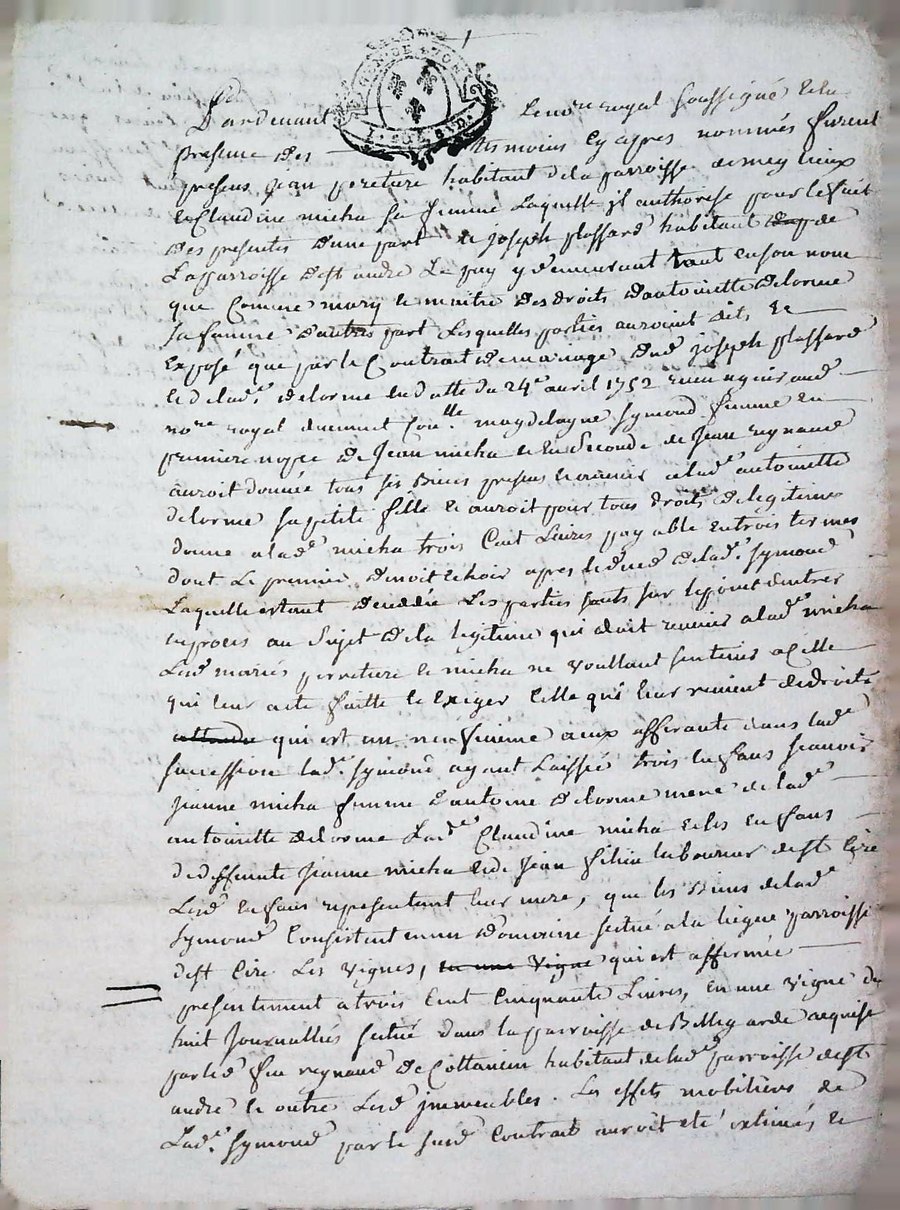 GEN. DE LYON
Pardevant Le no.re royal soussigné et en
presence des tesmoins cy apres nommés furent
presens jean pereture habitant de la parroisse de meylieux
et Claudine micha sa femme Laquelle jl authorise pour le fait
des presentes d'une part et joseph plossard habitant de
La parroisse de st andré Le puy y demeurant tant en son nom
que Comme mary et maitre des droits d'antoinette delorme
sa femme d'autre part Lesquelles parties auroint dit et
Exposé que par le Contrait de mariage dud joseph plossard
et de lad.e delorme en datte du 24.e avril 1752 receu
no.re royal magdelayne Symond femme en
premiere nopce de jean micha et en Seconde de jean reynaud
auroit donnée tous ses Biens presens et avenir a lad.e antoinette
delorme sa petite fille et auroit pour tous droits de legitime
donné a lad.e micha trois Cent Livres payable en trois termes
dont Le premier devoit echoir apres le deced de lad.e Symond
Laquelle estant decedée Les parties sont sur le point d'entrer
en proces au Sujet de la legitime qui doit revenir a lad.e micha
Lesd mariés pereture et micha ne voullant sen tenir a Celle
qui leur a ete faitte et Exiger Celle qui leur revient de droits
qui est un neufvieme a eux afferante dans lad.e
succession lad.e Symond ayant Laissée trois enfans scavoir
jeanne micha femme d'antoine delorme mere de lad.e
antoinette delorme Lad.e Claudine micha et les enfans
de deffunte jeanne micha et de jean laboureur de st Cire
Lesd Enfans representent leur mere, que les Biens de lad.e
Symond Consistent en un domaine scitué a la liegue parroisse
de st Cire Les vignes, en une vigne qui est affermée
presentement a trois Cent Cinquante Livres, en une vigne de
huit journallées scitué dans la parroisse de Bellegarde acquise
par led feu reynaud de Collaneur habitant de lad.e parroisse de st
andré et outre Lesd jmmeubles. Les effets mobiliers de
Lad.e Symond par le susd Contrait auroit eté estimés et